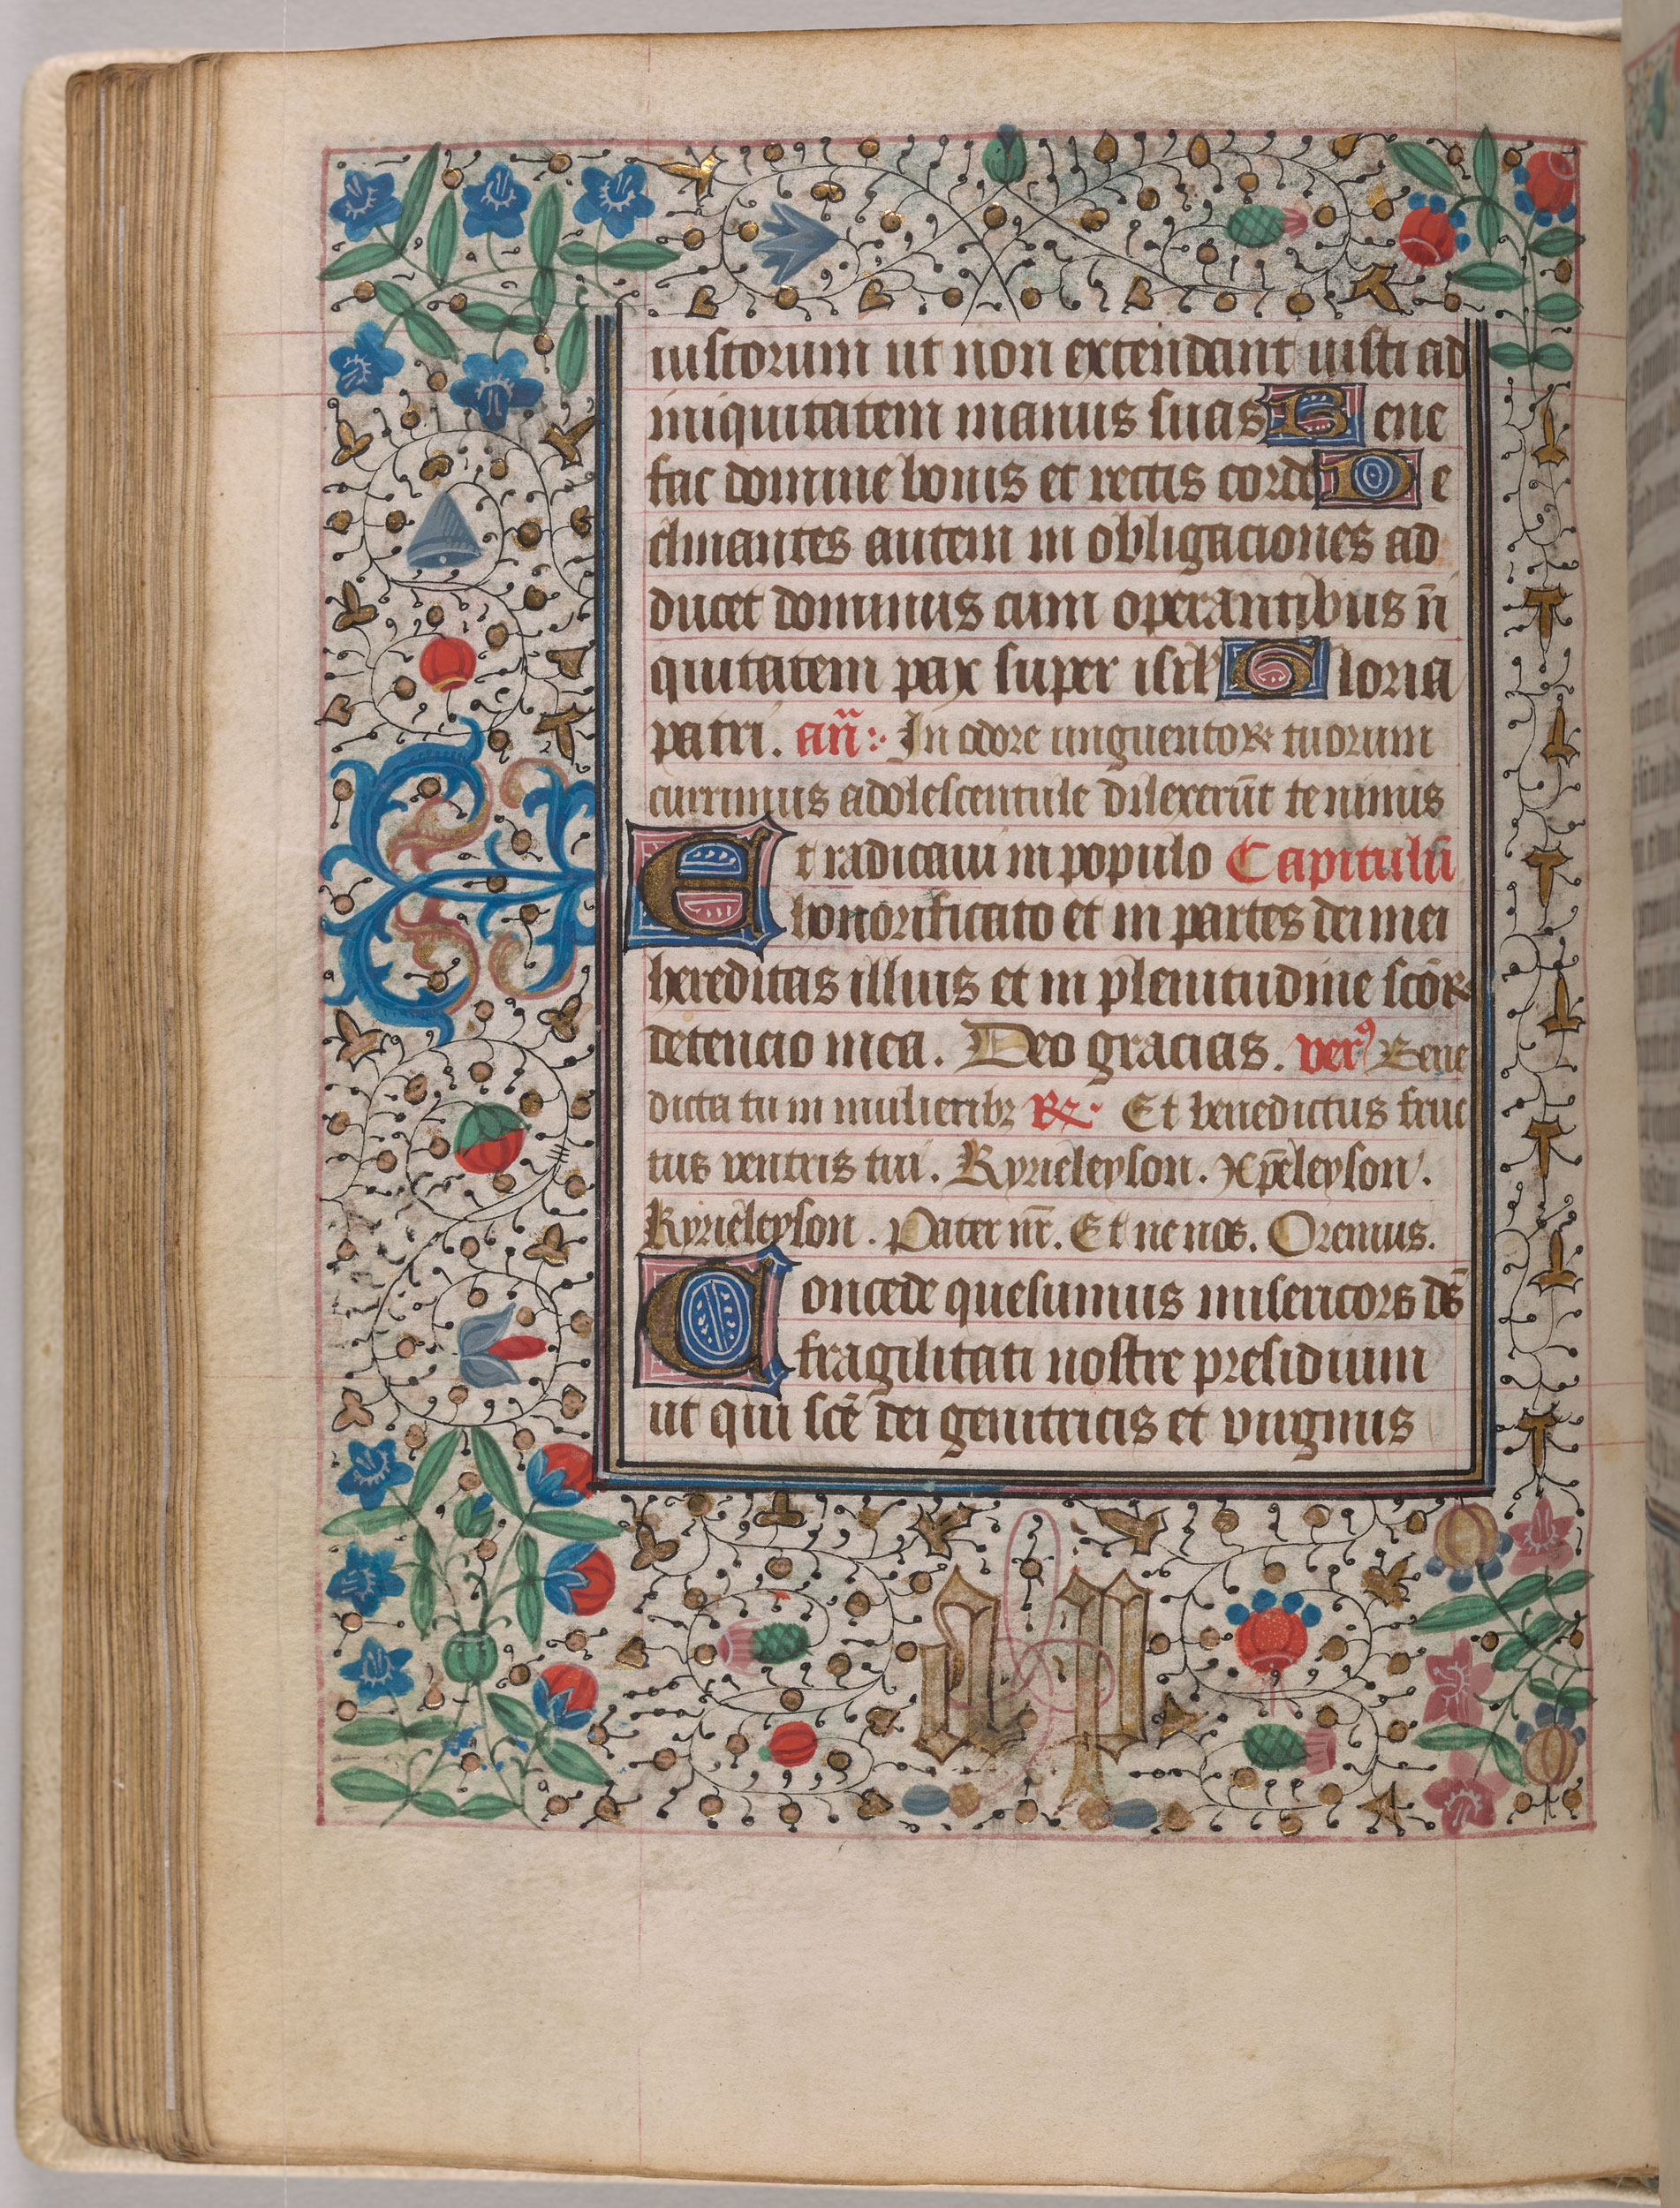 iustorum ut non extendant iusti ad
iniquitatem manus suas Bene
fac domine bonis et rectis corde De
clinantes autem in obligaciones ad
ducet dominus cum operantibus iñ
quitatem pax super isrl' Gloria
patri. an̄: In odore unguentoꝝ tuorum
currimus adolescentule dilexerūt te nimis
Et radicaui in populo Capitulū
honorificato et in partes dei mei
hereditas illius et in plenitudine sc̄oꝝ
detencio mea. Deo gracias. verꝰ Bene
dicta tu in mulieribꝫ ℞. Et benedictus fruc
tus ventris tui. Kyrieleyson. Xp̄eleyson.
Kyrieleyson. Pater nr̄. Et ne nos. Oremus.
Concede quesumus misericors ds̄
fragilitati nostre presidium
ut qui sc̄e dei genitricis et virginis